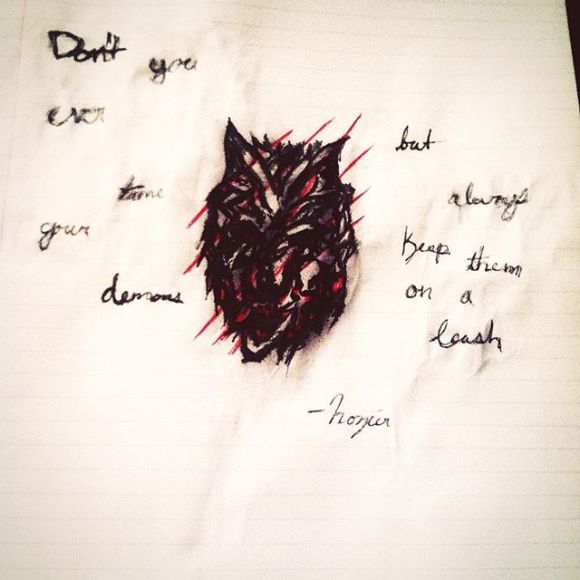 Don't you
ever
tame
your
demons
but
always
Keep them
on a
leash
-hozier